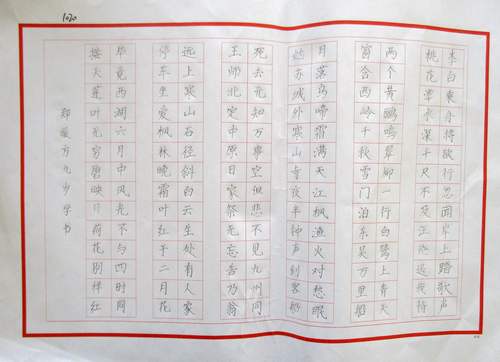 1020
李白乘舟将欲行忽闻岸上踏歌声
桃花潭水深千尺不及汪伦送我情
两个黄鹂鸣翠柳一行白鹭上青天
窗含西岭千秋雪门泊东吴万里船
月落乌啼霜满天江枫渔火对愁眠
姑苏城外寒山寺夜半钟声到客船
死去元知万事空但悲不见九州同
王师北定中原日家祭无忘告乃翁
远上寒山石径斜白云生处有人家
停车坐爱枫林晚霜叶红于二月花
毕竟西湖六月中风光不与四时同
接天莲叶无穷碧映日荷花别样红
郑媛方九岁学书